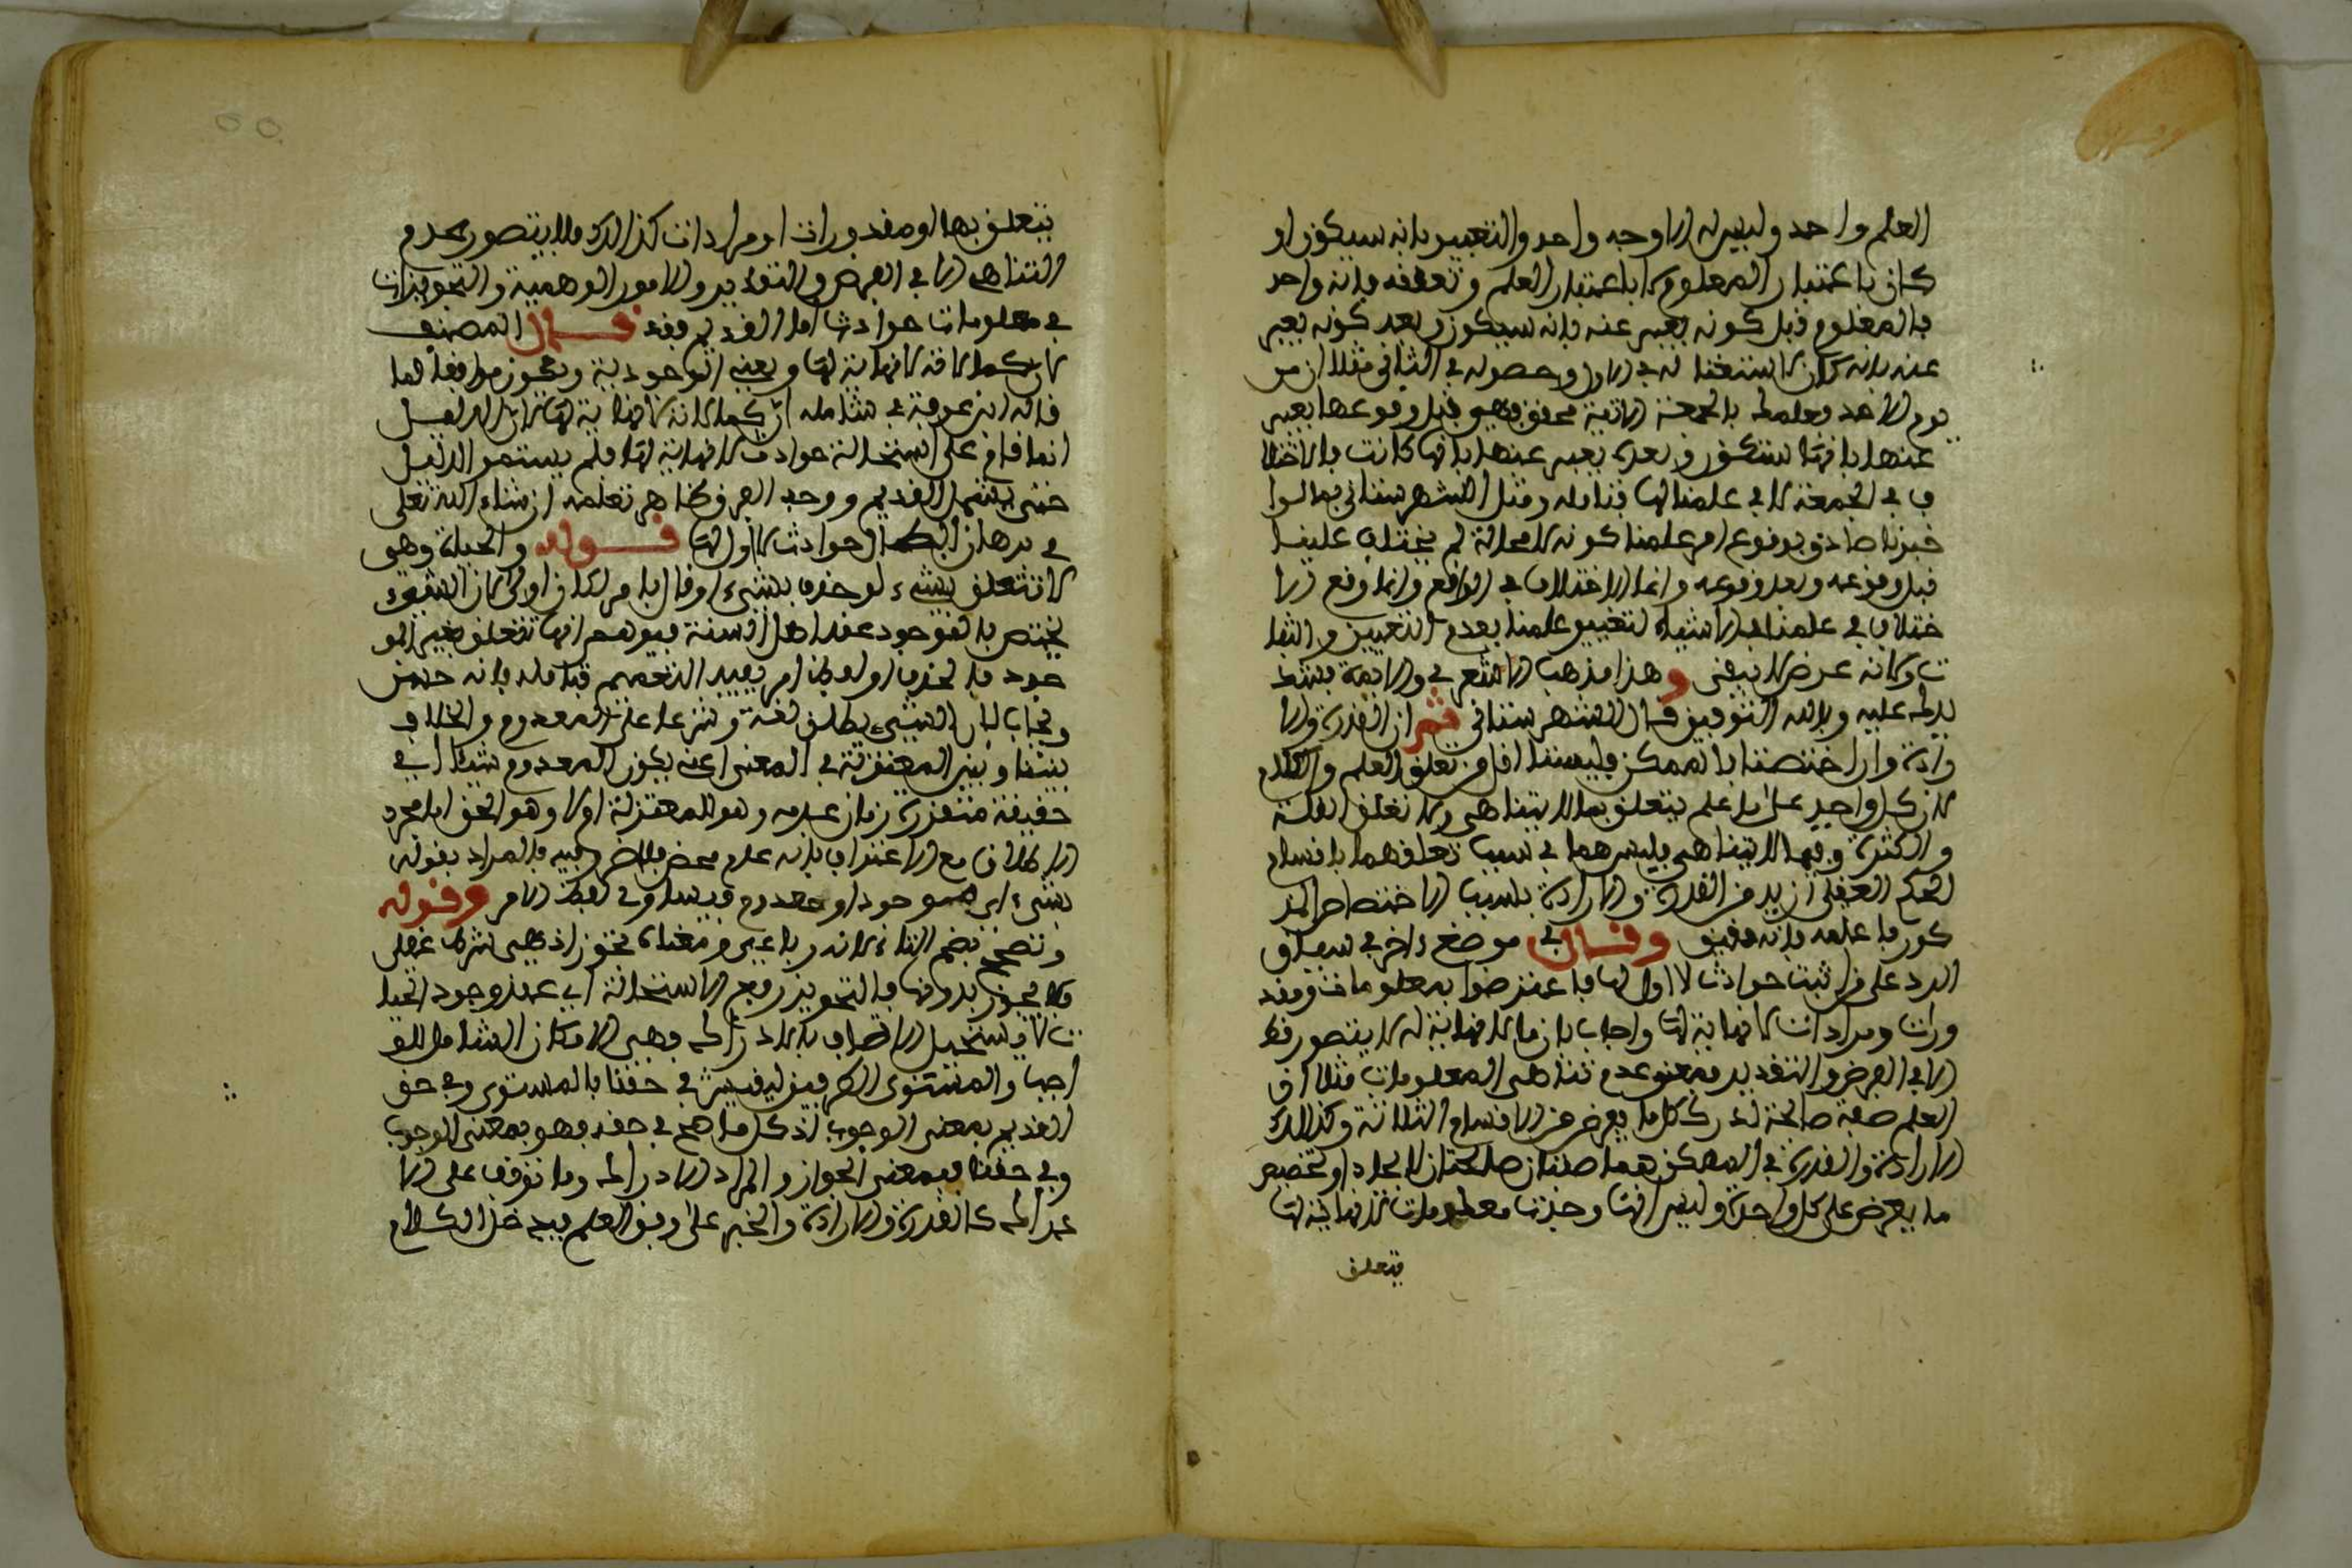 العلم واحد وليس له الا وجه واحد والتعبير بانه سيكون او
كان باعتبار المعلوم لا باعتبار العلم وتعلقه بانه واحد
بالمعلوم قبل كونه يعبر عنه بانه سيكون وبعد كونه يعبر
عنه بانه كان لاستقباله في الاول وحصوله في الثاني مثلا ان من
يوم الاحد وعلمك بالجمعة الاتية محقق وهو قبل وقوعها يعبر
عنها بانها ستكون وبعده يعبر عنها بانها كانت بالاختلا
ف في الجمعة لا في علمنا لها فتامله ومثل الشهرستاني بما لوا
خبرنا صادق بوقوع امر علمنا كونه لا محالة لم يختلف علينا
قبل وقوعه وبعد وقوعه وانما الاختلاف في الواقع وانما وقع الا
ختلاف في علمنا بالاشياء لتغيير علمنا بعدم التعيين والثبا
ت وكانه عرض لا يبقى وهذا مذهب الاشعري والايمة بسند
لدله عليه وبالله التوفيق قال الشهرستاني ثم ان القدرة والا
رادة وان اختصتا بالممكن فليستا اقل من تعلق العلم والكلام
لان كل واحد على ما علم يتعلق بما لا يتناهى ولا تعلق القلة
والكثرة وفيما لا يتناهى فليس هما في سبب تعلقهما باقسام
الحكم العقلي ازيد من القدرة والارادة بسبب الاختصاص المذ
كور فاعلمه بانه دقيق وقال في موضع ءاخر في سياق
الرد على من اثبت حوادث لا اول لها فاعترضوا بمعلومات ومقد
ورات ومرادات لا نهاية لها واجاب بان ما لا نهاية له لا يتصور قط
الا في الفرض والتقدير فمعنى عدم تناهي المعلومات مثلا ان
العلم صفة صالحة لدرك كل ما يعرض من الاقسام الثلاثة وكذالك
الارادة والقدرة في الممكن هما صفتان صالحتان لايجاد او تخصيص
ما يعرض على كل واحدة وليس انها وجدت معلومات لا نهاية لها
يتعلق
يتعلق بها او مقدورات او مرادات كذالك فلا يتصور عدم
التناهي الا في الفرض والتقدير والامور الوهمية والتجويزات
في معلومات حوادث اما القديم فقد قال المصنف
لان كمالاته لا نهاية لها ويعني الوجودية ويكون موافقا لما
قاله ابن عرفة في شامله ان كمالاته لا نهاية لها لان الدليل
انما قام على استحالة حوادث لا نهاية لها فلم يستمر الدليل
حتى يشمل القديم ووجه الفرق ظاهر تعلمه ان شاء الله تعلى
في برهان ابطال حوادث لا اول لها قوله والحياة وهي
لا تتعلق بشيء لو حذف بشيء او قال بامر لكان اولى لان الشيء
يختص بالموجود عند اهل السنة فيوهم انها تتعلق بغير المو
جود فالحذف او لفظ امر يفيد التعميم فتامله بانه حسن
ويجاب بان الشيء يطلق لغة وشرعا على المعدوم والخلاف
بيننا وبين المعتزلة في المعنى اعني يكون المعدوم شيئا اي
حقيقة متقررة زمان عدمه وهو للمعتزلة او لا وهو الحق اما مجرد
الاطلاق مع الاعتراف بانه عدم محض فلا ضرر فيه بالمراد بقوله
بشيء اي موجود او معدوم فيساوي لفظ الامر وقوله
وتصحح بضم التاء لانه رباعي ومعناه تجوز اذ هي شرط عقلي
فلا يجوز بدونها فالتجويز رفع الاستحالة اي عند وجود الحيا
ة لا يستحيل الاتصاف بالادراك وهي الامكان الشامل للو
اجب والمستوى الطرفين ليفسر في حقنا بالمستوى وفي حق
القديم بمعنى الوجوب اذ كل ما صح في حقه فهو بمعنى الوجوب
وفي حقنا فبمعنى الجواز والمراد الادراك وما توقف على الا
دراك كالقدرة والارادة والخبر على وفق العلم فيدخل الكلام